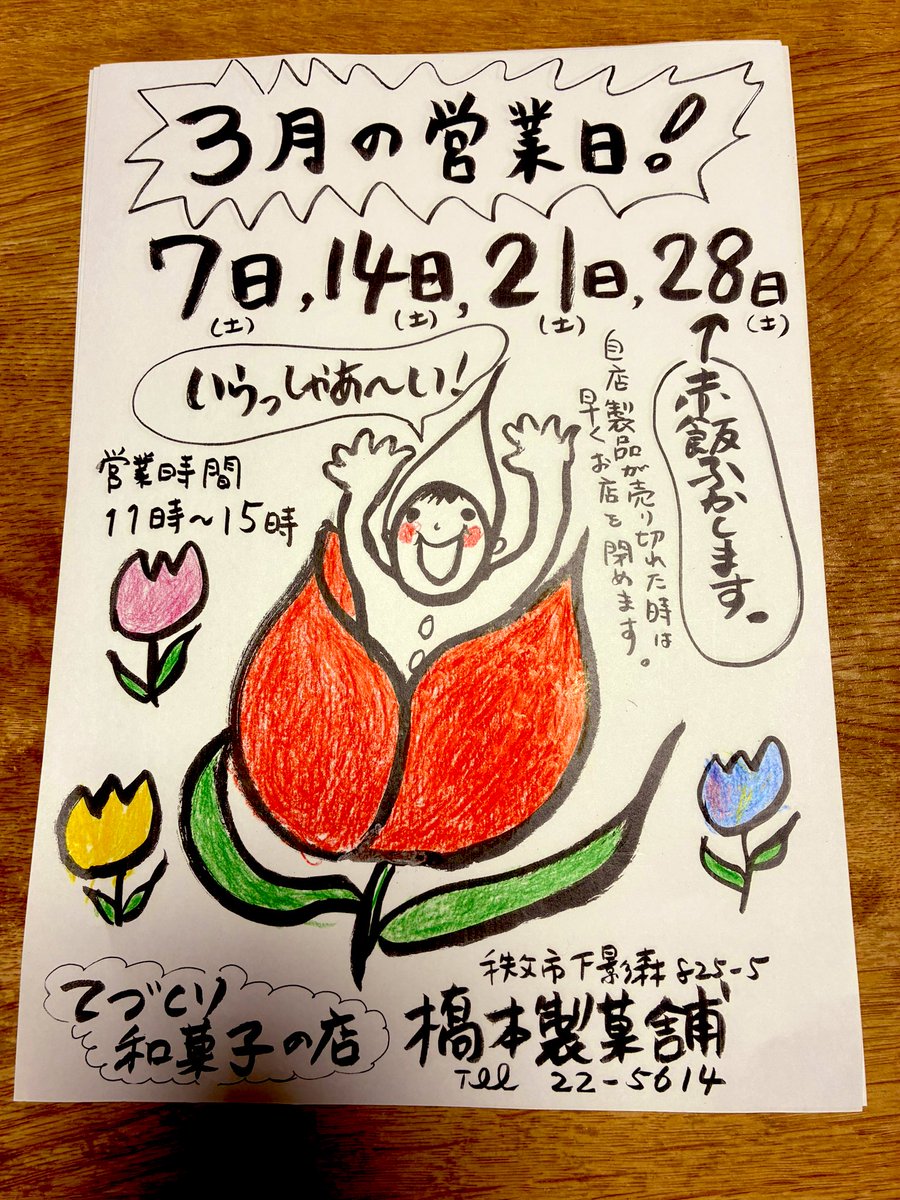 3月の営業日!
7日(土),14日(土),21日(土),28日(土)
いらっしゃあ〜い!
↑赤飯ふかします。
自店製品が売り切れた時は
早くお店を閉めます。
営業時間
11時〜15時
秩父市下影森825-5
てづくり
和菓子の店
橋本製菓舗
Tell 22-5614